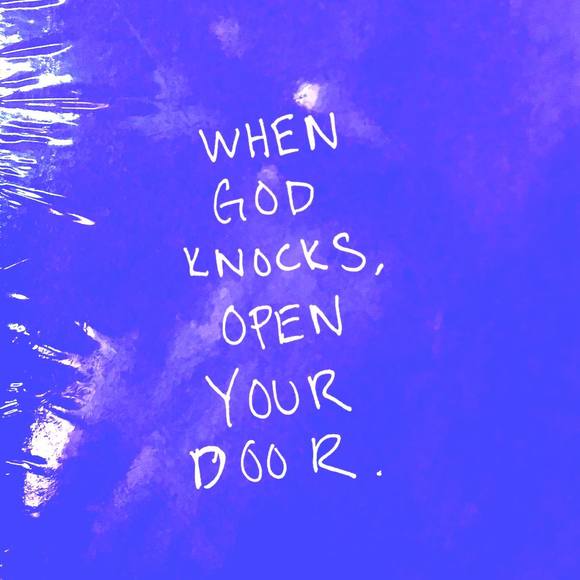 WHEN
GOD
KNOCKS,
OPEN
YOUR
DOOR.